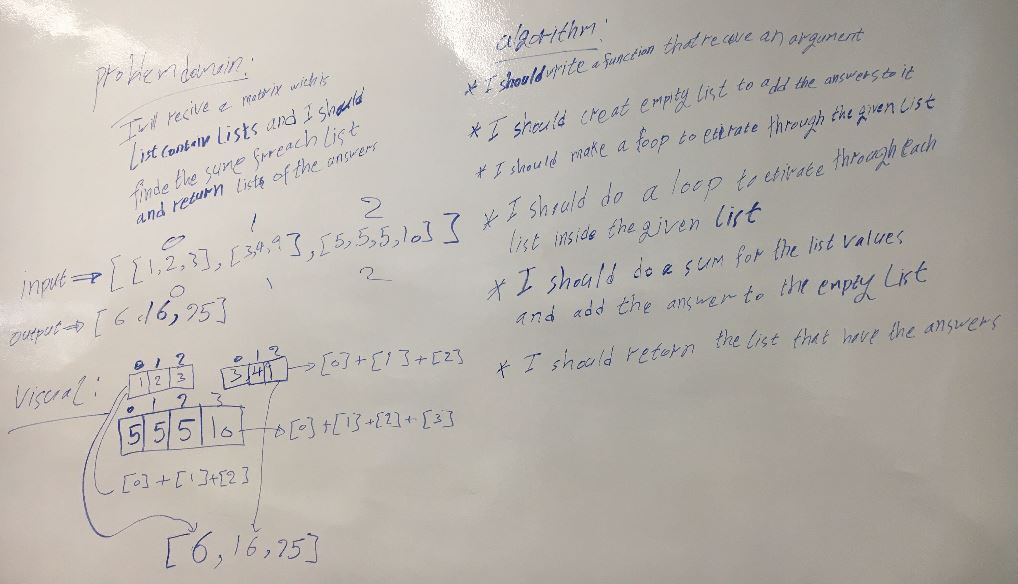 problem domain:
I will resive a matrix wich is
List contain Lists and I should
finde the sume for each List
and return lists of the answers
0 1 2
input => [ [1,2,3], [3,4,9], [5,5,5,10] ]
0 1 2
output => [ 6, 16, 25]
Visual:
0 1 2
1 2 3
0 1 2
3 4 9 → [0]+[1]+[2]
0 1 2 3
5 5 5 10 → [0]+[1]+[2]+[3]
[0]+[1]+[2]
[6, 16, 25]
algorithm:
* I should write a function that receve an argument
* I should creat empty list to add the answers to it
* I should make a loop to etirate through the given List
* I should do a loop to etirate through each
list inside the given list
* I should do a sum for the list values
and add the answer to the empty List
* I should return the list that have the answers